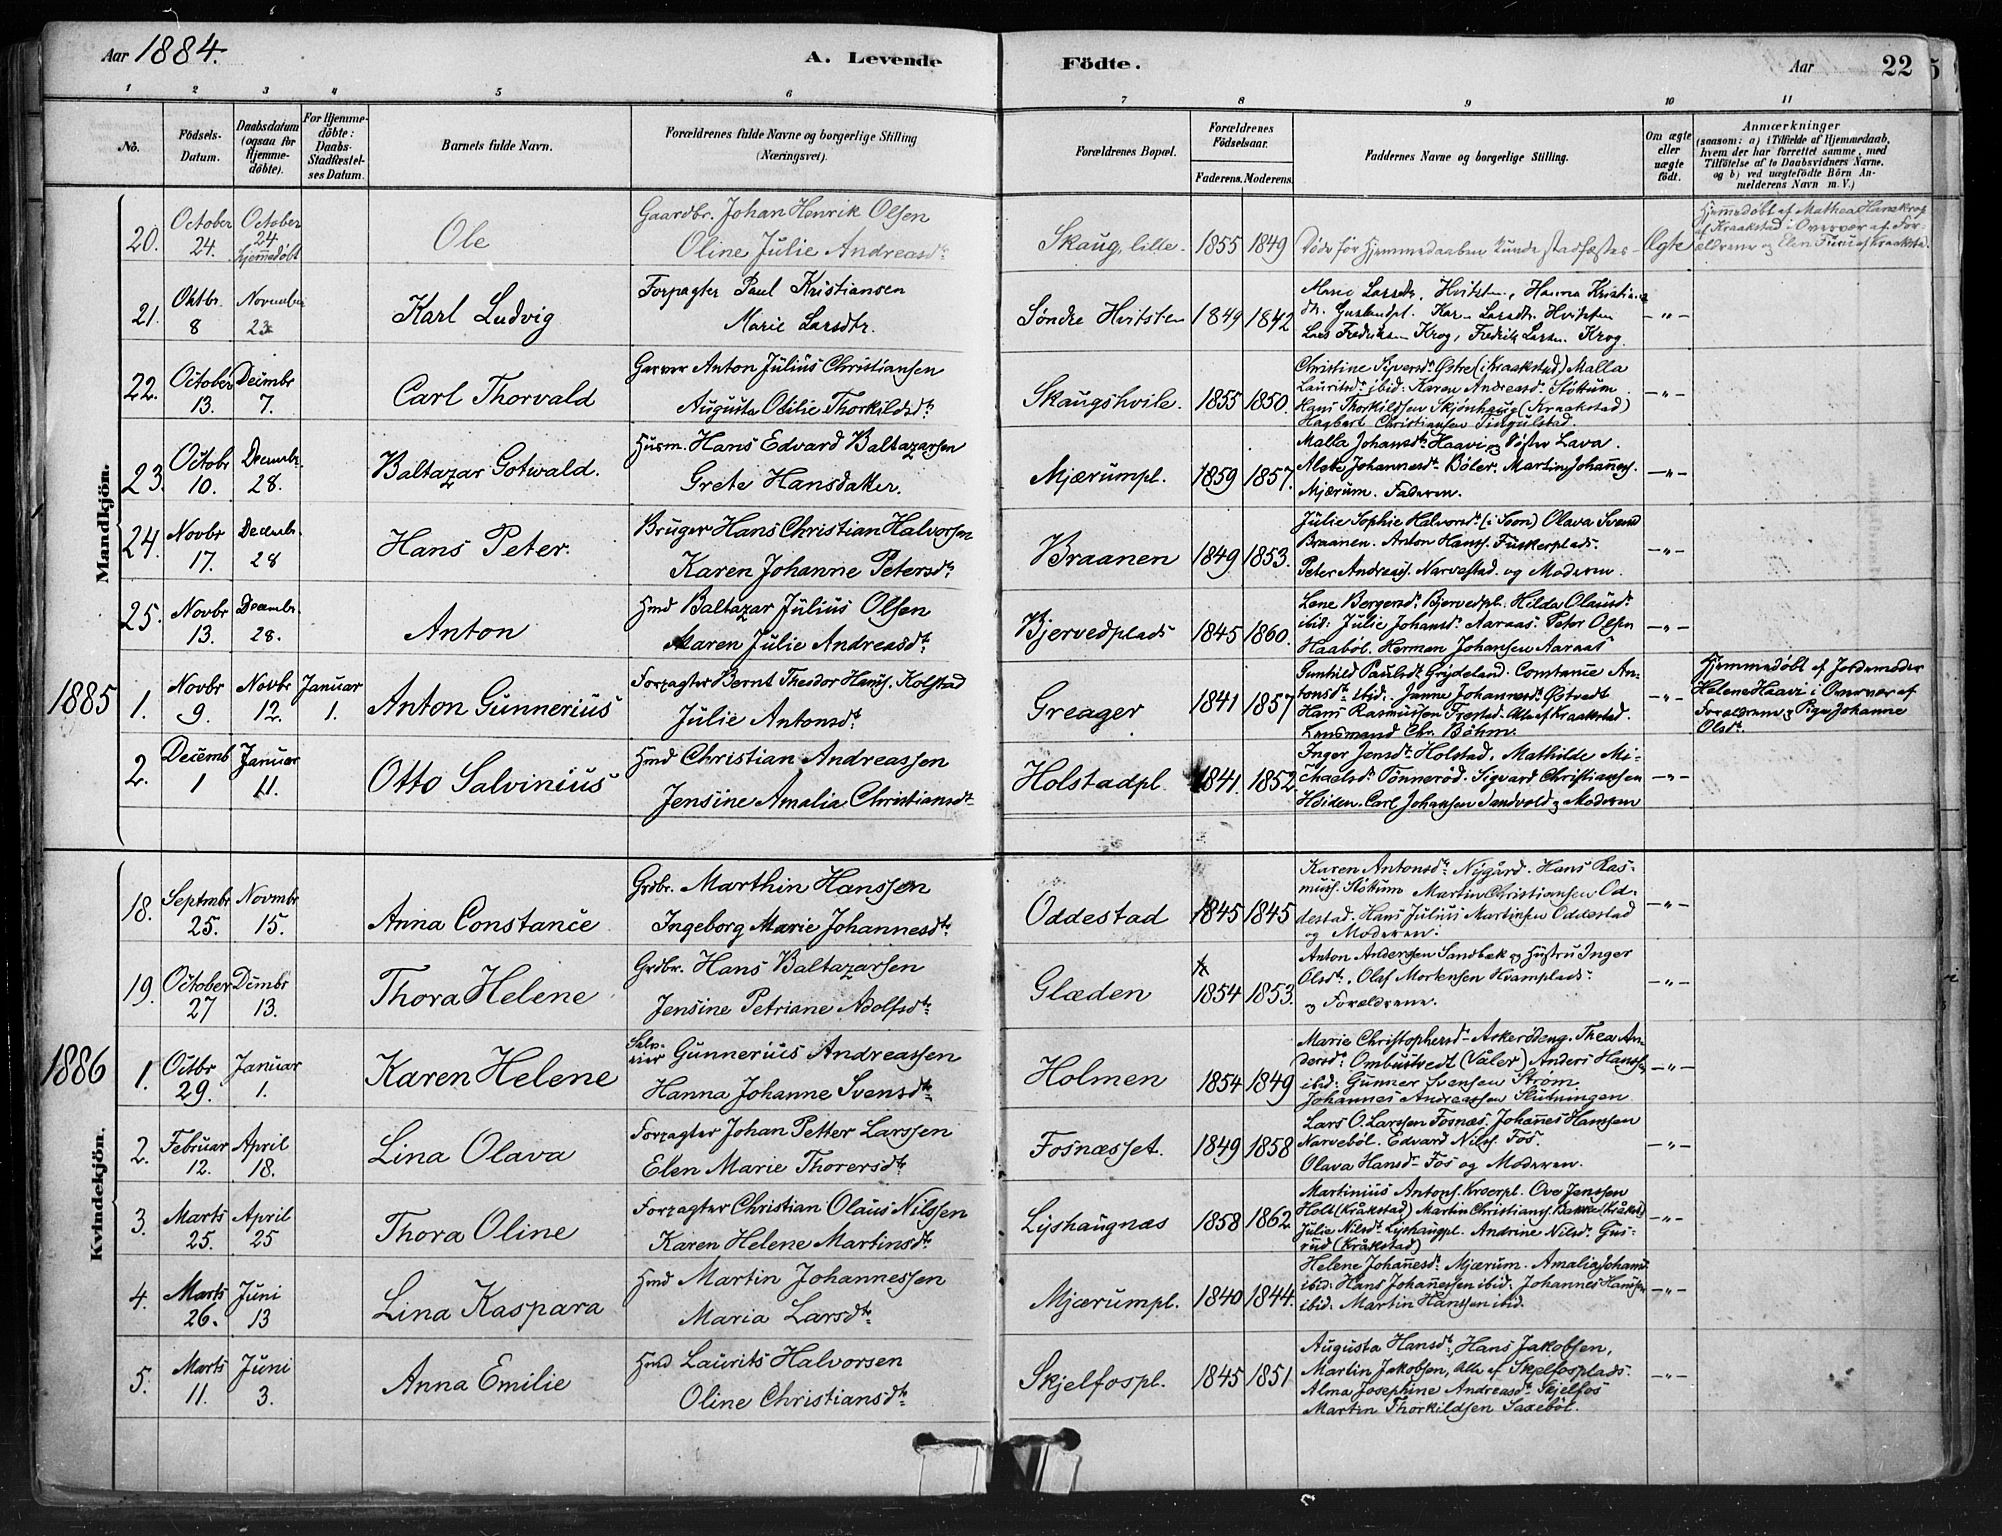 Aar 1884.
A. Levende Födte.
Aar 22
1 2 3 4 5 6 7 8 9 10 11
No.
Födsels-Datum.
Daabsdatum (ogsaa for Hjemme-döbte).
For Hjemme-döbte: Daabs-Stadfæstel-ses Datum.
Barnets fulde Navn.
Forældrenes fulde Navne og borgerlige Stilling (Næringsvei).
Forældrenes Bopæl.
Forældrenes Födselsaar.
Faderens. Moderens.
Faddernes Navne og borgerlige Stilling.
Om ægte eller uægte födt.
Anmærkninger
(saasom: a) i Tilfælde af Hjemmedaab, hvem der har forrettet samme, med Tilföielse af to Daabsvidners Navne. og b) ved uægtefödte Börn Anmelderens Navn m. V.)
Mandkjön.
20. October 24. October 24 hjemmedøbt Ole
Gaardbr. Johan Henrik Olsen
Oline Julie Andreasdtr
Skaug, lille 1855 1849 Døde før Hjemmedaaben kunde stadfæstes Ægte
Hjemmedøbt af Mathea
af Kraakstad i Overvær af For-
ældrene og Elen af Kraakstad
21. Oktbr. 8 November 23 Karl Ludvig
Forpagter Paul Kristiansen
Marie Larsdtr.
Søndre Hvitsten 1849 1842
Larsdtr. Hvitsten, Hanna
Larsdtr. Hvitsten
Lars Fredriksen Krog, Fredrik Larsen Krog. — " —
22. October 13. Decimbr 7. Carl Thorvald
Garver Anton Julius Christiansen
Augusta Otilie Thorkildsdtr
Skaugshvile. 1855 1850.
Christine Siversdtr Østre (i Kraakstad) Malla
Lauritsdtr ibid: Karen Andreasdtr Støttum
Hans Thorkildsen Skjønhaug (Kraakstad)
Hagbart Christiansen Tingulstad. — " —
23. Octobr 10. Decembr. 28. Baltazar Gotwald.
Husm. Hans Edvard Baltazarsen
Grete Hansdatter.
Mjærumpl. 1859 1857.
Malla Johansdtr Haavi Søster Lava.
Johannesdtr Bøler. Martin Johannes.
Mjærum. Faderen. — " —
24. Novbr 17. Decembr. 28 Hans Peter.
Bruger Hans Christian Halvorsen
Karen Johanne Petersdtr
Braanen 1849 1853.
Julie Sophie Halvorsdtr (i Soon) Olava Svend
Braanen. Anton Hanss.
Peter Andreass. Narvestad. og Moderen. — " —
25. Novbr 13. Decembr. 28. Anton
Hmd Baltazar Julius Olsen
Maren Julie Andreasdtr
Bjervedplads 1845 1860.
Lene Bergersdtr. Bjervedpl. Hilda Olausdtr
ibid: Julie Johansdtr Aaraas. Peter Olsen
Haabøl. Herman Johansen Aaraas — " —
1885
1. Novbr 9. Novbr 12. Januar 1. Anton Gunnerius
Forpagter Bernt Theodor Hanss. Kolstad
Julie Antonsdtr
Greager 1841 1857
Gunhild Paulsdtr Grydeland. Constance An-
tonsdtr ibid. Janne Johannesdtr Østvedt
Hans Rasmussen Frestad. Alle af Kraakstad.
Lensmand Chr. Bøhm. — " —
Hjemmedøbt af Jordemoder
Helene Haavi i Overvær af
Forældrene & Pige Johanne
Olsdtr.
2. Decemb 1 Januar 11. Otto Salvinius
Hmd Christian Andreassen
Jensine Amalia Christiansdtr
Holstadpl. 1841. 1852.
Inger Jensdtr Holstad. Mathilde Mi-
chaelsdtr Tønnerød. Sigvard Christianssen
Heiden. Carl Johansen Sandvold & Moderen — " —
Kvindekjön.
18. Septmbr 25. Novmbr 15. Anna Constance
Grdbr. Marthin Hanssen
Ingeborg Marie Johannesdtr.
Oddestad 1845 1845
Karen Antonsdtr. Nygård. Hans Ras-
muss. Støttum Martin Christiansen Od-
destad. Hans Julius Martinsen Oddestad
og Moderen. — " —
19. October 27 Dcmbr 13. Thora Helene
Grdbr. Hans Baltazarsen
Jensine Petriane Adolfsdtr
Glæden 1854 1853.
Anton Andersen Sandbæk & Hustru Inger
Olsdtr. Olaf Mortensen Hvamplads.
& Forældrene. — " —
1886
1. Octbr 29. Januar 1. Karen Helene
Selv-eier Gunnerius Andreassen
Hanna Johanne Svensdtr
Holmen 1854 1849
Marie Christophersdtr Askerødeng. Thea An-
dersdtr: Ombustvedt (Våler) Anders Hanssen
ibid: Gunner Svensen Strøm.
Johannes Andreassen Slutningen — " —
2. Februar 12. April 18. Lina Olava
Forpagter Johan Petter Larssen
Elen Marie Thorersdtr
Fosnæsset. 1849 1858
Lars O. Larssen Fosnæs. Johannes Hanssen
Narvebøl. Edvard Nilss. Fos.
Olava Hansdtr Fos og Moderen. — " —
3. Marts 25. April 25 Thora Oline
Forpagter Christian Olaus Nilssen
Karen Helene Martinsdtr
Lyshaugnæs 1858 1862
Martinius Antons. Kroerpl. Ove Jenssen
Holt (Kråkstad) Martin Christianss. Bakke (Kråkst.)
Julie Nilsdtr Lyshaugpl. Andrine Nilsd. Gus-
rud (Kråkstad) — " —
4. Marts 26. Juni 13 Lina Kaspara
Hmd Martin Johannessen
Maria Larsdtr
Mjærumpl. 1840 1844.
Helene Johannesdtr Mjærum. Amalia Johans
ibid: Hans Johannessen ibid. Johannes Hanssen
ibid: Martin Hanssen ibid. — " —
5. Marts 11. Juni 3. Anna Emilie
Hmd. Laurits Halvorsen
Oline Christiansdtr
Skjelfospl. 1845 1851
Augusta Hansdtr, Hans Jakobsen,
Martin Jakobsen, Alle af Skjelfosplads.
Alma Josephine Andreasdtr Skjelfos
Martin Thorkildsen Saxebøl. — " —